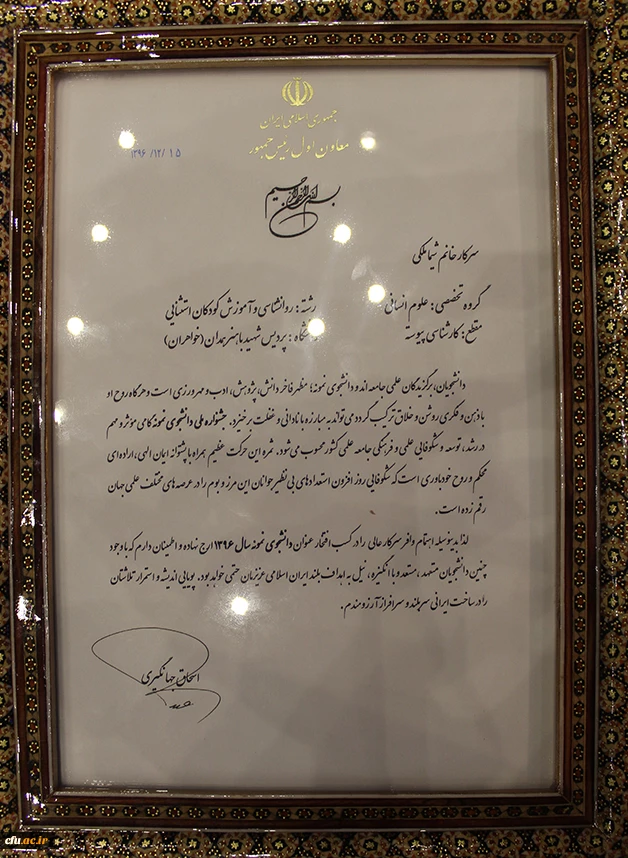 جمهوری اسلامی ایران
معاون اول رئیس جمهور
۱۳۹۶/ ۱۲/ ۱۵
بسم الله الرحمن الرحیم
سرکار خانم شیما ملکی
گروه تخصصی: علوم انسانی رشته: روانشناسی و آموزش کودکان استثنایی
مقطع: کارشناسی پیوسته : پردیس شهید باهنر همدان (خواهران)
دانشجویان، برگزیدگان علمی جامعه اند و دانشجوی نمونه؛ مظهر فاخر دانش، پژوهش، ادب و مهرورزی است و هرگاه روح او
با ذهن و فکری روشن و خلاق ترکیب گردد می تواند به مبارزه با نادانی و غفلت برخیزد. جشنواره ملی دانشجوی نمونه گامی مؤثر و مهم
در رشد، توسعه و شکوفایی علمی و فرهنگی جامعه علمی کشور محسوب می شود. ثمره این حرکت عظیم همراه با پشتوانه ایمان الهی، اراده ای
محکم و روح خودباوری است که شکوفایی روز افزون استعدادهای بی نظیر جوانان این مرز و بوم را در عرصه های مختلف علمی جهان
رقم زده است.
لذا بدینوسیله اهتمام وافر سرکار عالی را در کسب افتخار عنوان دانشجوی نمونه سال ۱۳۹۶ ارج نهاده و اطمینان دارم که با وجود
چنین دانشجویان متعهد، متعهد با انگیزه، نیل به اهداف بلند ایران اسلامی عزیزمان حتمی خواهد بود. پویایی اندیشه و استمرار تلاشتان
را در ساخت ایرانی سربلند و سرافراز آرزومندم.
اسحاق جهانگیری
cfu.ac.ir